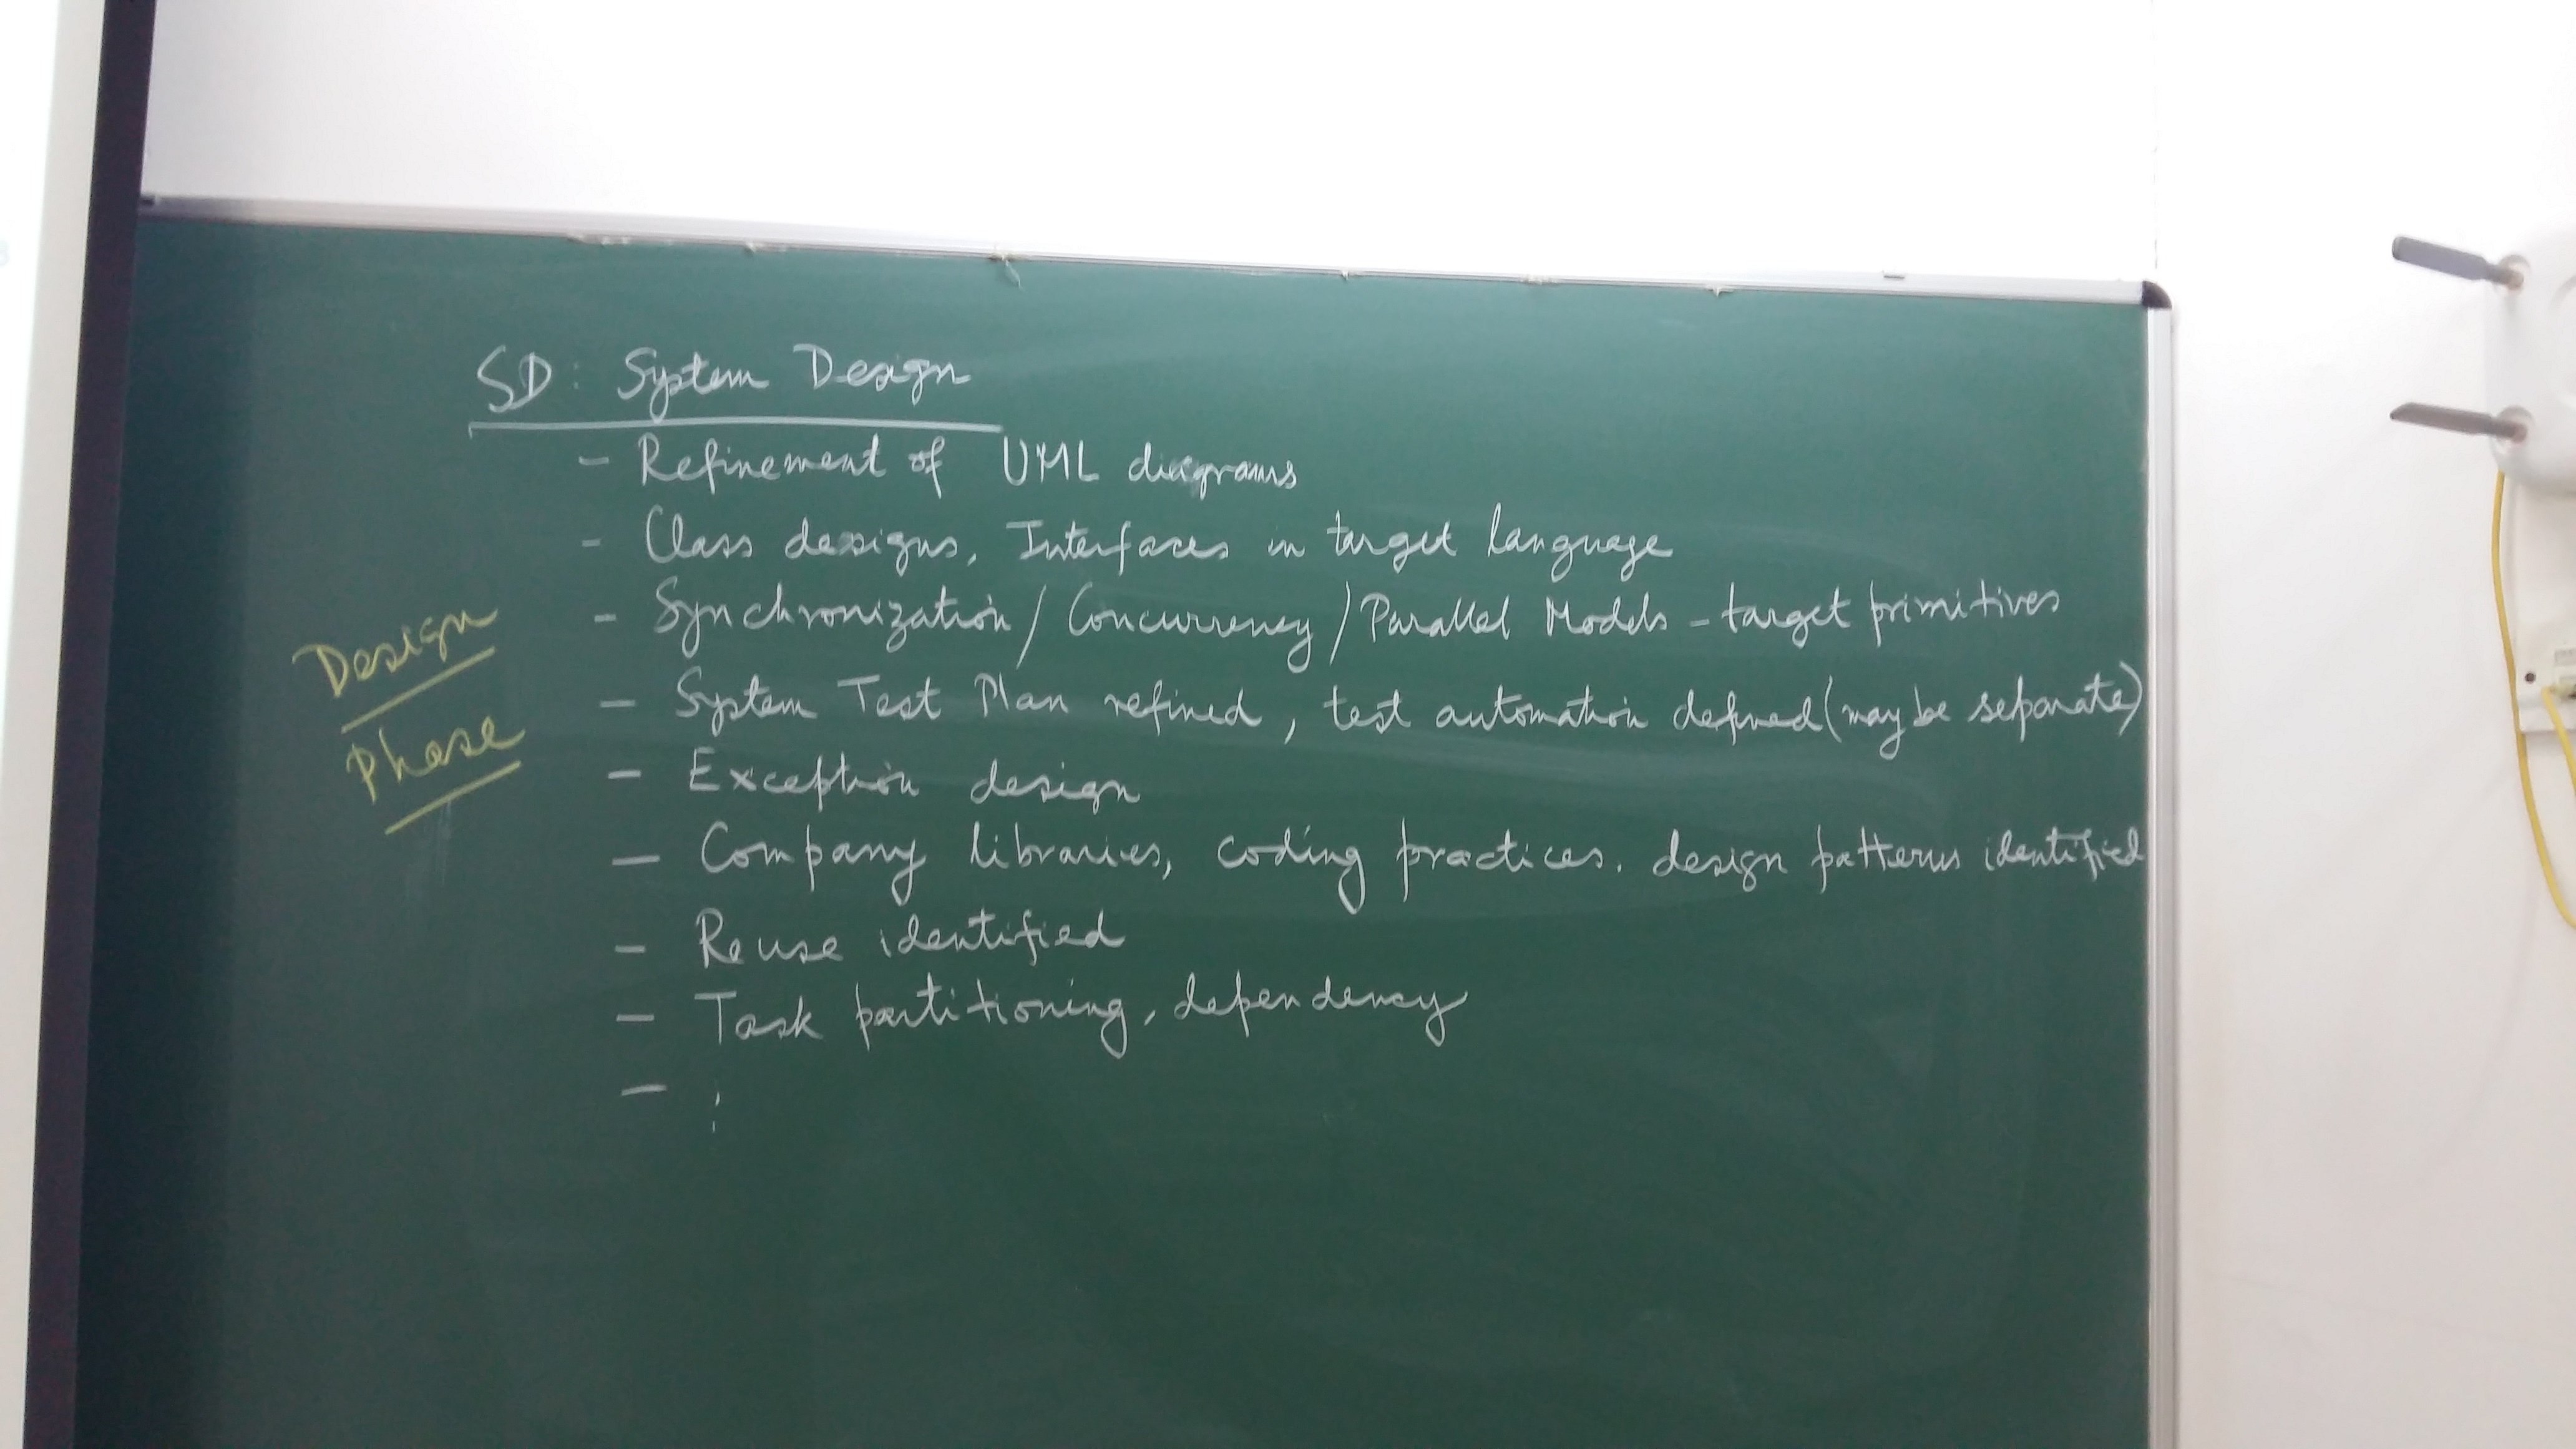 SD: System Design
- Refinement of UML diagrams
- Class designs, Interfaces in target language
- Synchronization/Concurrency/Parallel Models - target primitives
Design
Phase
- System Test Plan refined, test automation defined (may be separate)
- Exception design
- Company libraries, coding practices, design patterns identified
- Reuse identified
- Task partitioning, dependency
- ⋮